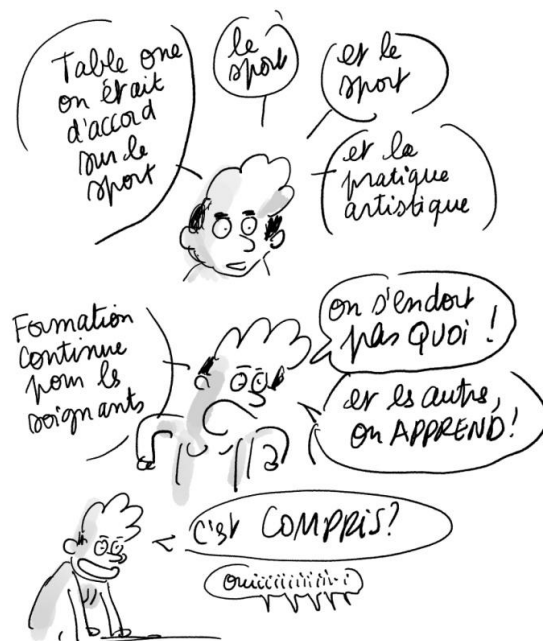 Table one
on était
d'accord
sur le
sport
le
sport
et le
sport
et la
pratique
artistique
Formation
continue
pour ls
soignants
on s'endort
pas QUOI !
et ls autre,
on APPREND!
c'est COMPRIS?
ouiiiiiiiiiiii